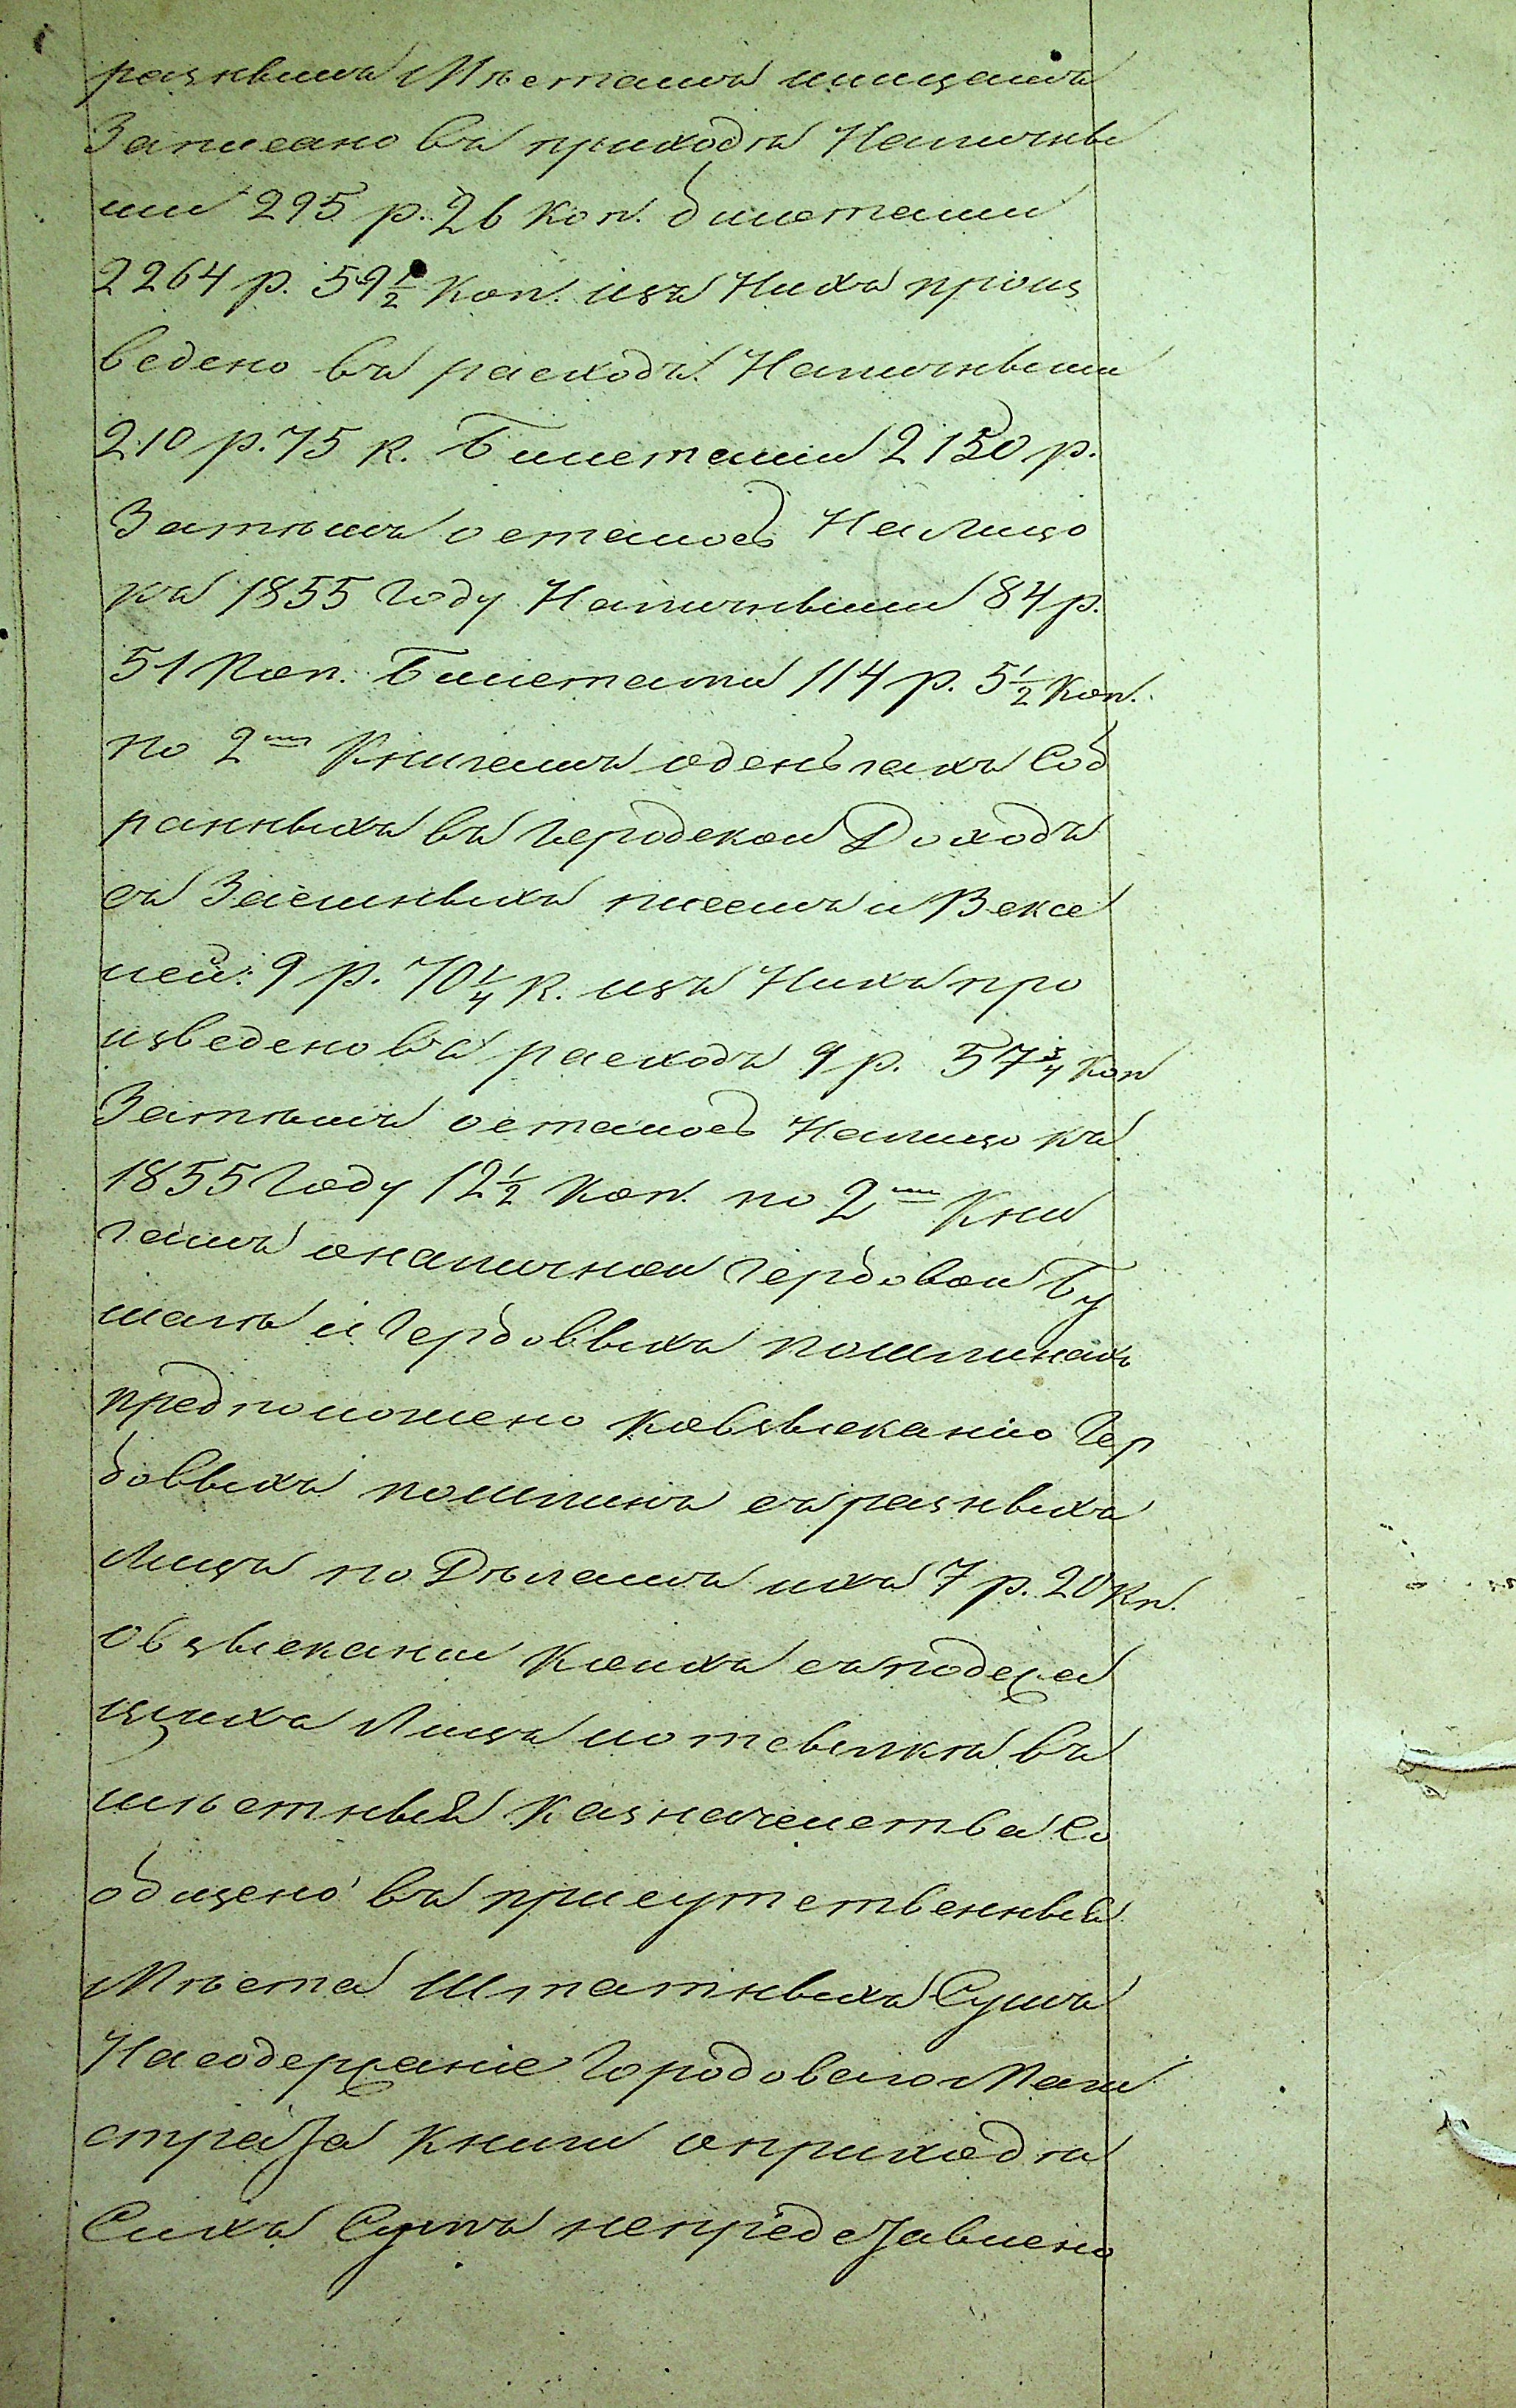 разнымъ Мѣстамъ илицамъ
Записано въ приходѣ Наличны
ми 295 р. 26 коп. билетами
2264 р. 5 9 1/2 коп. изъ Нихъ произ
ведено въ расходъ Наличными
210 р. 75 к. Билетами 2150 р.
Затѣмъ остатось На Лицо
къ 1855 году Наличными 84 р.
51 Коп. Билетами 114 р. 5 1/2 Коп.
по 2мъ Книгамъ оденьгахъ Соб
ранныхъ въ городской Доходъ
съ Заемныхъ писемъ и Вексе
лей: 9 р. 70 1/4 к. изъ Нихъ про
изведено въ расходъ 9 р. 57 3/4 Коп
Затѣмъ осталось Налицо къ
1855 Году 12 1/2 Коп. по 2мъ Кни
гамъ оналичной гербовой Бу
магѣ и Гербовыхъ пошлинахъ
предположено Ковзысканію Гер
бовыхъ пошлинъ съразныхъ
Лицъ по Дѣламъ ихъ 7 р. 20 Кп.
овзысканіи Коихъ съподсжа
щихъ Лицъ иотсылкѣ въ
мѣстныя Казначейства Со
общено въ присутственныя
Мѣста Штатныхъ Суммъ
Насодержаніе Городоваго Маги
страта Книги оприходѣ
Сихъ Суммъ непредставлено